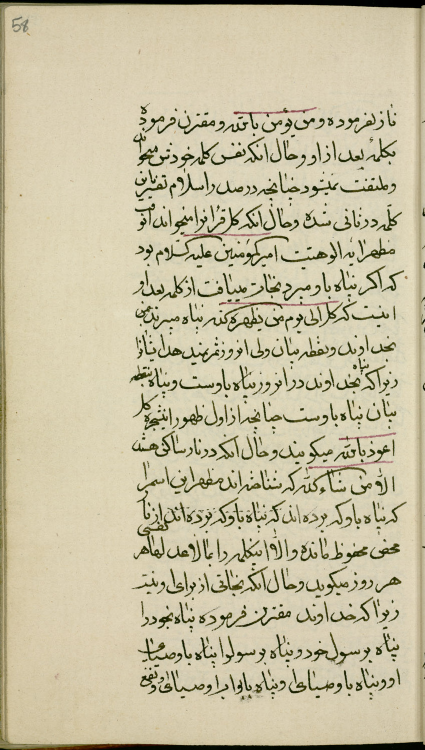 58
نازل فرموده و من یؤمن بالله و مقترن فرموده
بکلمهٔ بعد از او و حال آنکه نفس کلمه خود تن میخواند
و ملتفت نمیشود چنانچه در صدر اسلام تفسیر باین
کلمه در ثانی شده و حال آنکه کل قرآن را میخواند
مظهر آیه الوهیت امیر المؤمنین علیه السلام بود
که اگر پناه باو میبرد نجات مییافت از کلمه بعد او
اینست که کل الی یوم من یظهره الله پناه میبرند
بخداوند و بنقطه بیان ولی آنروز ثمر نمیدهد ایشانرا
زیرا که پناه بخداوند در آنروز پناه باوست و پناه بنقطه
بیان پناه باوست چنانچه از اول ظهور کل
اعوذ بالله میگویند و حال آنکه در نار ساکن هستند
الا من شاء الله که شناخته‌اند مظهر این اسم را
که پناه باو که برده‌اند که پناه باو که برده‌اند از نار نفسی
محض محفوظ مانده و الا این کلمه را بما لا عدل
هر روز میگویند و حال آنکه نجاتی از برای او نیست
زیرا که خداوند مقترن فرموده پناه بخود را
پناه برسول خود و پناه برسول او پناه باوصیای
او و پناه باوصیای او پناه بابواب اوصیای او